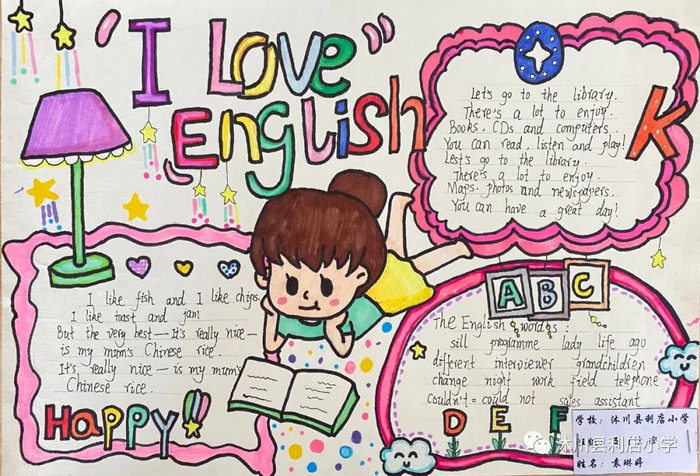 "I Love"
English
Let's go to the library.
There's a lot to enjoy.
Books. CDs and computers.
You can read, listen and play!
Lest's go to the library.
There's a lot to enjoy.
Maps. photos and newspapers.
You can have a great day!
K
I like fish and I like chips.
I like toast and jam
But the very best—It's really nice—
is my mum's Chinese rice.
It's really nice—is my mum's
Chinese rice.
Happy!!
A B C
The English words:
still programme lady life ago
different interviewer grandchildren
change night work field telephone
couldn't=could not sales assistant
D E F
学校: 沐川县利店小学
姓名:
沐川县利店小学